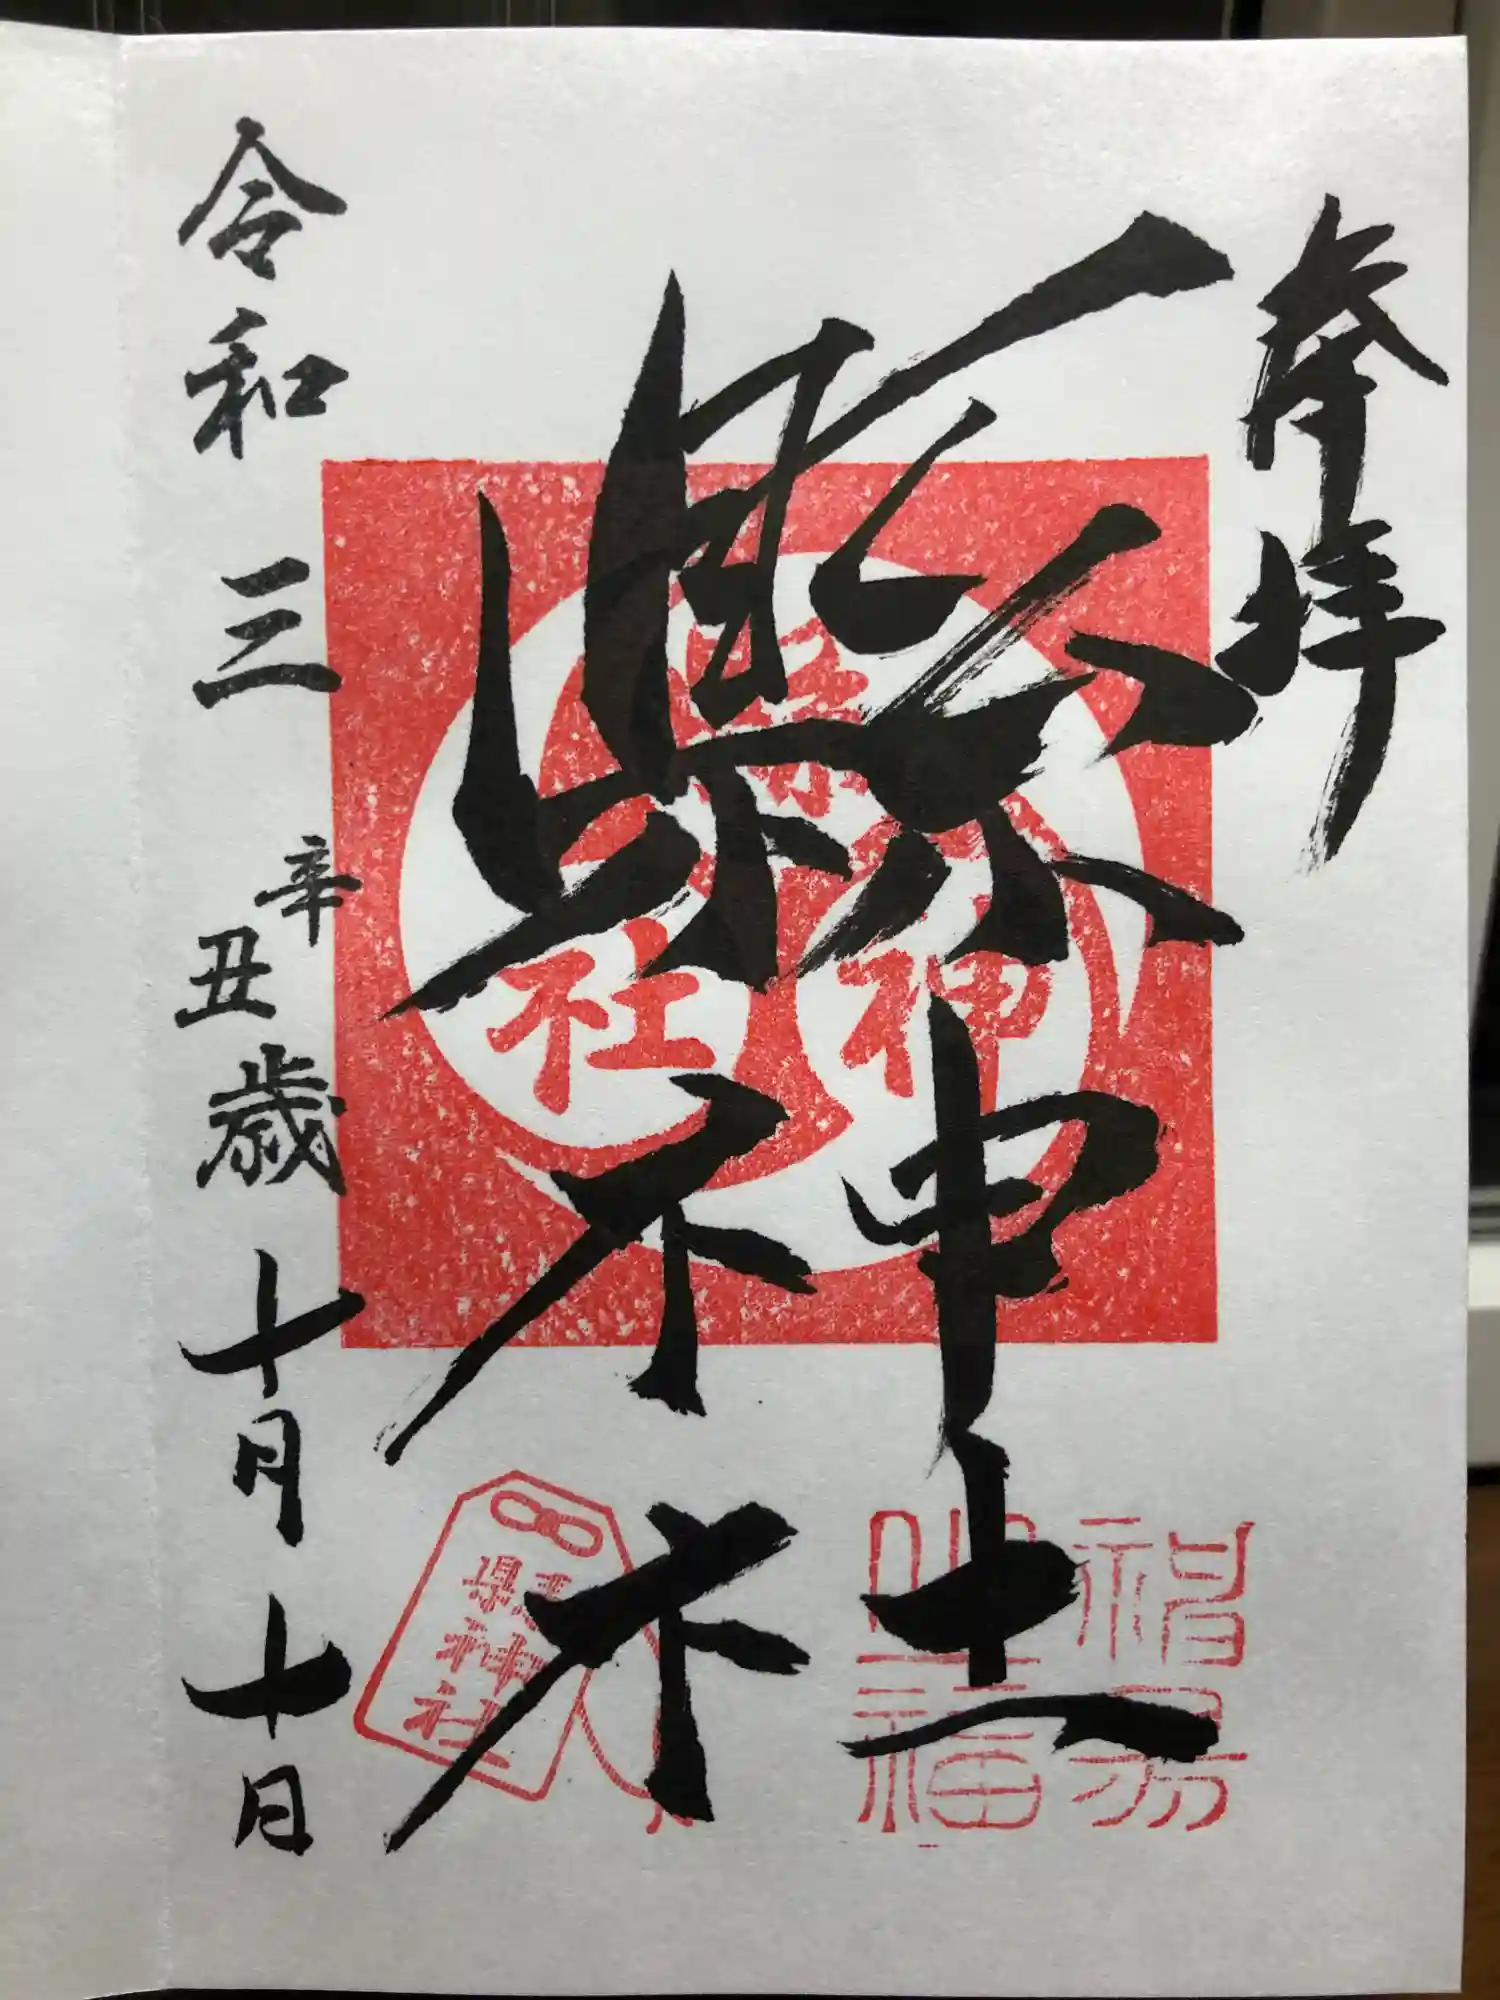 奉拝
縣神社
令和三辛丑歳十月十日
縣
神社
縣神社